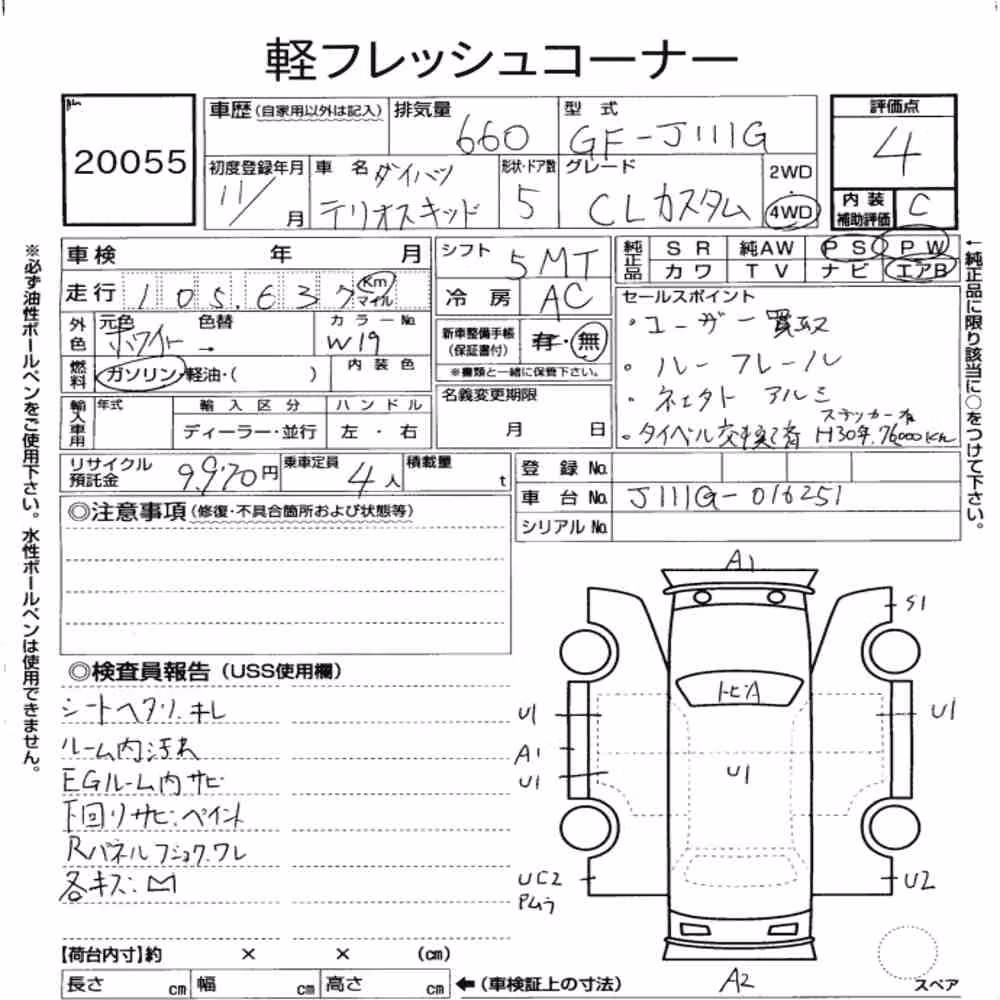 軽フレッシュコーナー
20055
車歴(自家用以外は記入)
排気量 660
型式 GF-J111G
評価点 4
初度登録年月 11/ 月
車名 ダイハツ
テリオスキッド
形状・ドア数 5
グレード CLカスタム
2WD
・
4WD
内装
補助評価 C
車検 年 月
走行 105,637 Km
マイル
シフト 5MT
冷房 AC
純正品 SR 純AW PS PW
カワ TV ナビ エアB
外色 元色 色替 カラーNo.
ホワイト → W19
燃料 ガソリン・軽油・( )
内装色
新車整備手帳
(保証書付) 有・無
※書類と一緒に保管下さい。
セールスポイント
・ユーザー買取
・ルーフレール
・ネェクト アルミ
ステッカー有
・タイベル交換済 H30年.76000Km
輸入車用 年式 輸入区分 ハンドル
ディーラー・並行 左・右
名義変更期限
月 日
リサイクル
預託金 9,970円
乗車定員 4人
積載量 t
登録No.
車台No. J111G-016251
シリアルNo.
※必ず油性ボールペンをご使用下さい。水性ボールペンは使用できません。
←純正品に限り該当に○をつけて下さい。
◎注意事項(修復・不具合箇所および状態等)
◎検査員報告(USS使用欄)
シートヘタリ.キレ
ルーム内汚れ
EGルーム内サビ
下回りサビ.ペイント
Rパネルフショク.ワレ
各キズ:凹
A1
S1
トビA
U1
U1
A1
U1
U1
UC2
Pムラ
U2
A2
スペア
【荷台内寸】約 × × (cm)
長さ cm 幅 cm 高さ cm ←(車検証上の寸法)